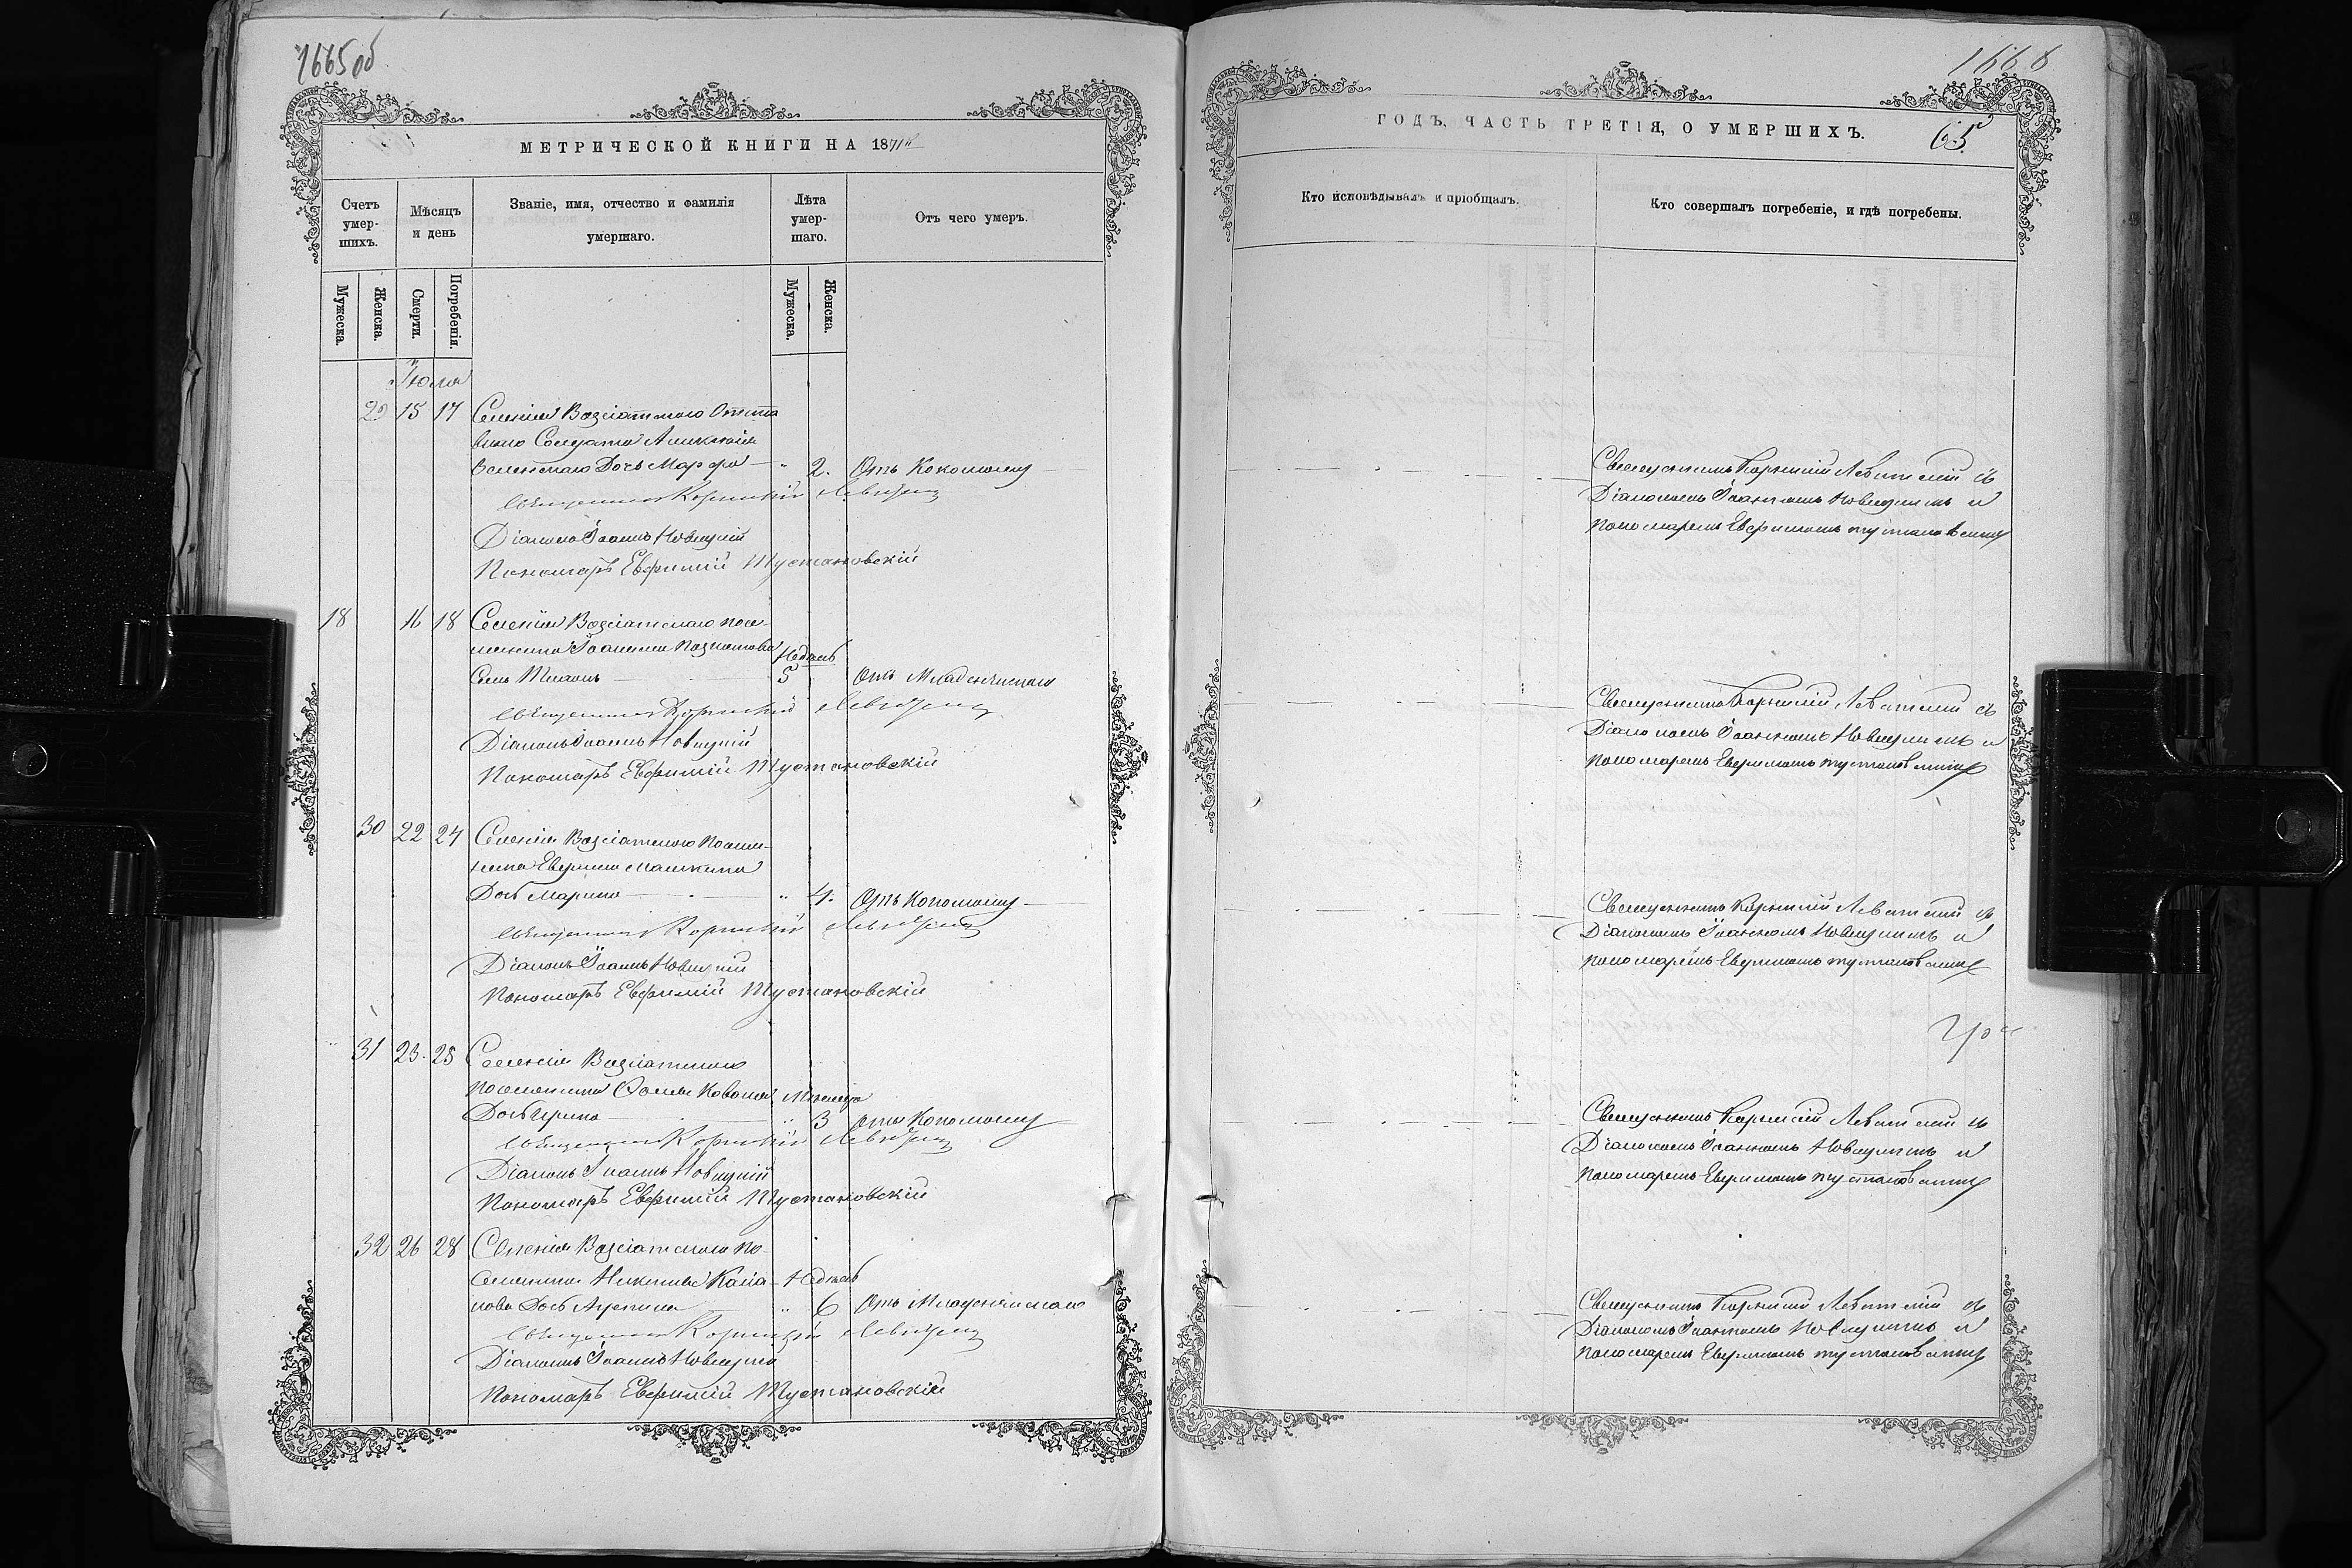 1665 об
МЕТРИЧЕСКОЙ КНИГИ НА 1871й
Счетъ умершихъ.
Мѣсяцъ и день
Званіе, имя, отчество и фамилія умершаго.
Лѣта умершаго.
Отъ чего умеръ.
Мужеска.
Женска.
Смерти.
Погребенія.
Мужеска.
Женска.
Іюля
29 15 17 Селенія Возсіатского Отста
вного Солдата
Дочь Марфа 2. Отъ Коклюшу
Священникъ Корнилій Левитскій
Діаконъ Іоаннъ Новицкій
Пономарь Евфимій Тустановскій
18 16 18 Селенія Возсіатского посе-
лянина Іоанна
Недѣль
Сынъ 5 Отъ Младенческаго
Священникъ Корнилій Левитскій
Діаконъ Іоаннъ Новицкій
Пономарь Евфимій Тустановскій
30 22 24 Селенія Возсіатского Поселя-
нина Евфима
Дочь Марина 4. Отъ Коклюшу
Священникъ Корнилій Левитскій
Діаконъ Іоаннъ Новицкій
Пономарь Евфимій Тустановскій
31 23. 25 Селенія Возсіатского
поселянина Фомы Мѣсяца
Дочь Ирина 3 Отъ Коклюшу
Священникъ Корнилій Левитскій
Діаконъ Іоаннъ Новицкій
Пономарь Евфимій Тустановскій
32 26 28 Селенія Возсіатского По-
селянина Никиты Недѣль
Дочь 6 Отъ Младенческаго
Священникъ Корнилій Левитскій
Діаконъ Іоаннъ Новицкій
Пономарь Евфимій Тустановскій
1666
ГОДЪ, ЧАСТЬ ТРЕТІЯ, О УМЕРШИХЪ.
65
Кто исповѣдывалъ и пріобщалъ.
Кто совершалъ погребеніе, и гдѣ погребены.
Священникъ Корнилій Левитскій съ
Діакономъ Іоанномъ Новицкимъ и
пономаремъ Евфимомъ Тустановским
Священникъ Корнилій Левитскій съ
Діакономъ Іоанномъ Новицкимъ и
пономаремъ Евфимомъ Тустановским
Священникъ Корнилій Левитскій съ
Діакономъ Іоанномъ Новицкимъ и
пономаремъ Евфимомъ Тустановским
Священникъ Корнилій Левитскій съ
Діакономъ Іоанномъ Новицкимъ и
пономаремъ Евфимомъ Тустановским
Священникъ Корнилій Левитскій съ
Діакономъ Іоанномъ Новицкимъ и
пономаремъ Евфимомъ Тустановским